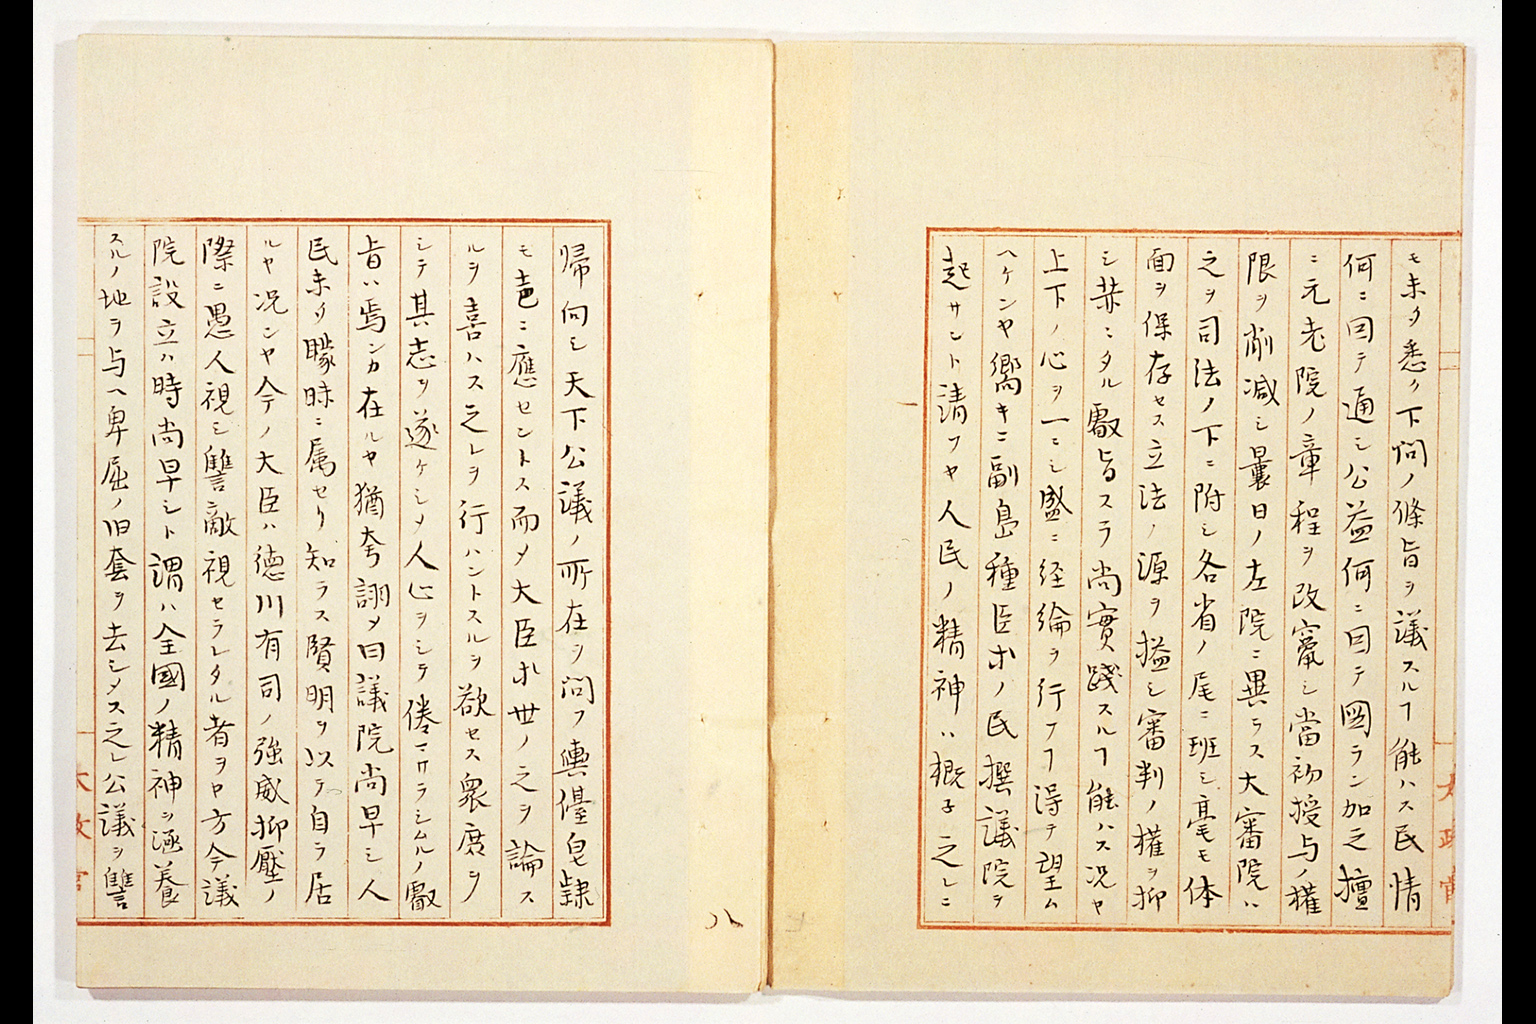 モ未タ悉ク下問ノ條旨ヲ議スルヿ能ハス民情
何ニ因テ通シ公益何ニ因テ圖ラン加之擅
ニ元老院ノ章程ヲ改竄シ當初授与ノ權
限ヲ削減シ曩日ノ左院ニ異ラス大審院ハ
之ヲ司法ノ下ニ附シ各省ノ尾ニ班シ毫モ体
面ヲ保存セス立法ノ源ヲ搤シ審判ノ權ヲ抑
シ恭ニタル叡旨スラ尚實踐スルヿ能ハス况ヤ
上下ノ心ヲ一ニシ盛ニ経綸ヲ行フヿ得テ望ム
ヘケンヤ嚮キニ副島種臣ホノ民撰議院ヲ
起サント請フヤ人民ノ精神ハ概子之レニ
帰向シ天下公議ノ所在ヲ問フ輿儓皂隷
モ
ニ應セントス而メ大臣ホ世ノ之ヲ論ス
ルヲ喜ハス之レヲ行ハントスルヲ欲セス衆庶ヲ
シテ其志ヲ遂ケシメ人心ヲシテ倦マサラシムルノ叡
旨ハ焉ンカ在ルヤ猶夸詡メ曰議院尚早シ人
民未タ矇昧ニ属セリ知ラス賢明ヲ以テ自ラ居
ルヤ况ンヤ今ノ大臣ハ徳川有司ノ強威抑壓ノ
際ニ愚人視シ讐敵視セラレタル者ヲヤ方今議
院設立ハ時尚早シト謂ハ全國ノ精神ヲ涵養
スルノ地ヲ与ヘ卑屈ノ旧套ヲ去シメス之レ公議ヲ讐
太政官
太政官
八
七